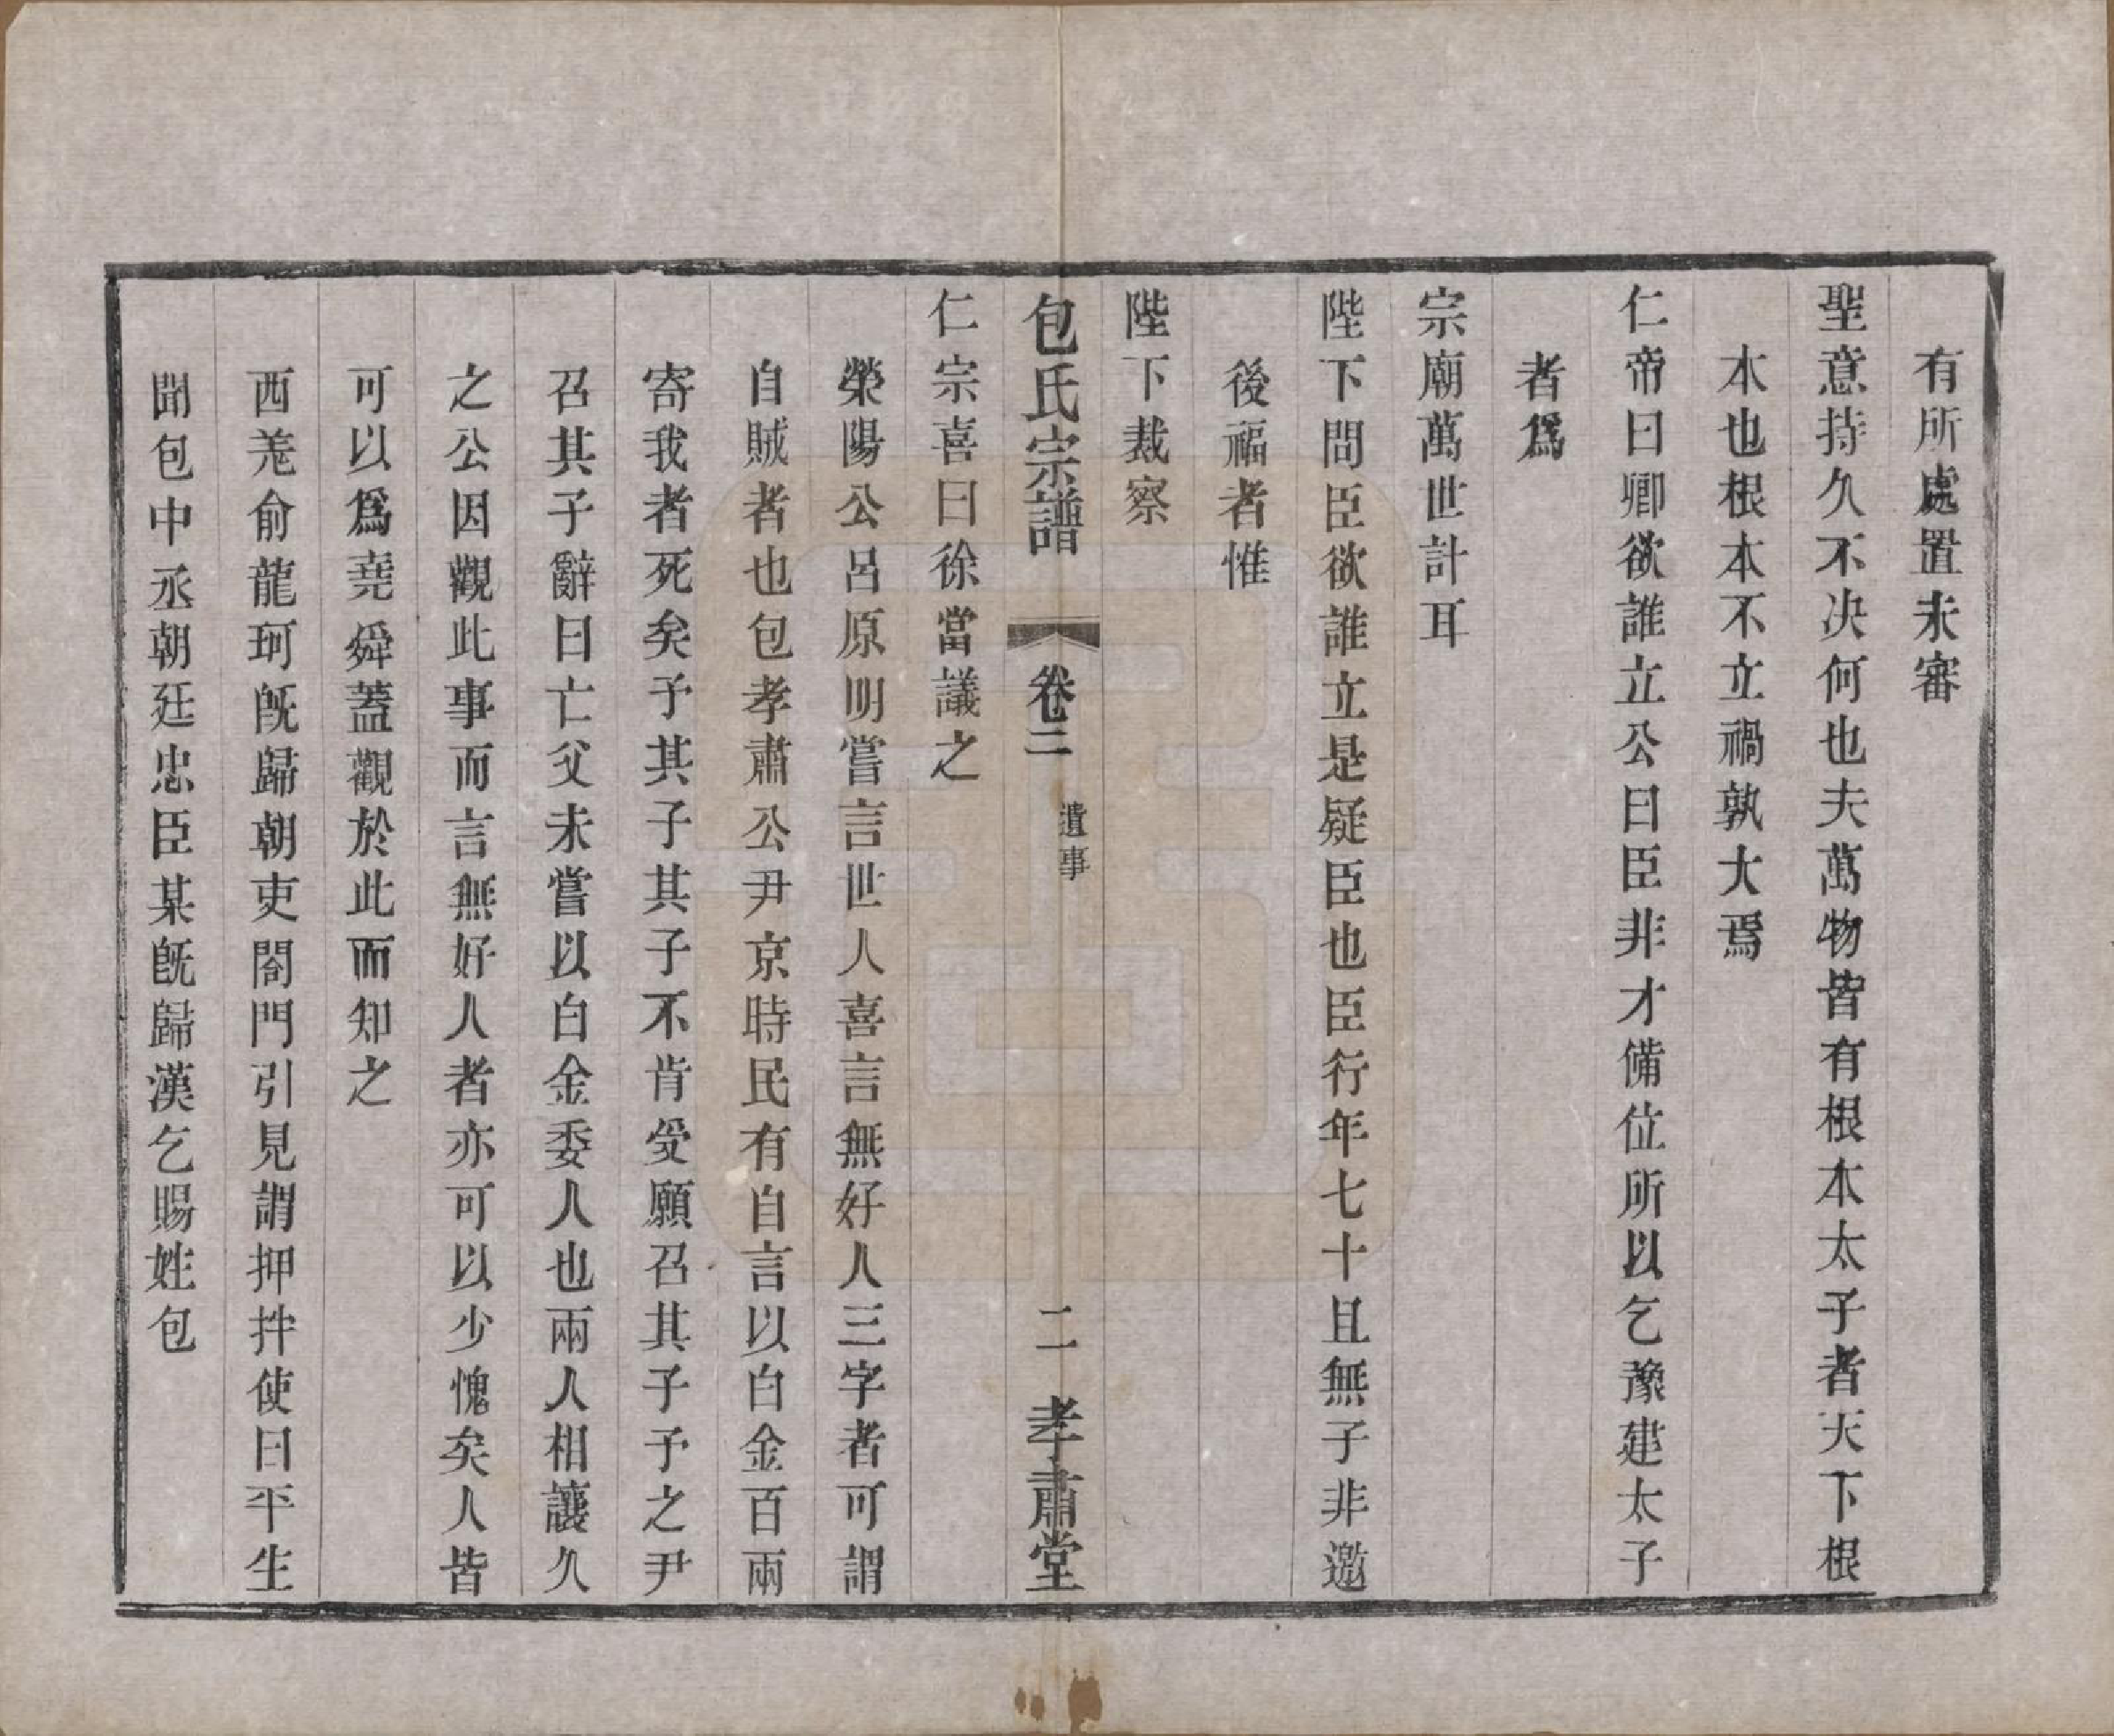 有所處置未審
聖意持久不决何也夫萬物皆有根本太子者天下根
本也根本不立禍孰大焉
仁帝曰卿欲誰立公曰臣非才備位所以乞豫建太子
者爲
宗廟萬世計耳
陛下問臣欲誰立是疑臣也臣行年七十且無子非邀
後福者惟
陛下裁察
包氏宗譜
卷二
遺事
二
孝肅堂
仁宗喜曰徐當議之
榮陽公呂原明嘗言世人喜言無好人三字者可謂
自賊者也包孝肅公尹京時民有自言以白金百兩
寄我者死矣予其子其子不肯受願召其子予之尹
召其子辭曰亡父未嘗以白金委人也兩人相讓久
之公因觀此事而言無好人者亦可以少愧矣人皆
可以爲堯舜蓋觀於此而知之
西羗俞龍珂旣歸朝吏閤門引見謂押拌使曰平生
聞包中丞朝廷忠臣某旣歸漢乞賜姓包